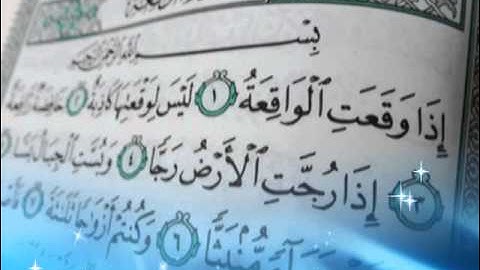 بِسْمِ ٱللَّهِ ٱلرَّحْمَٰنِ ٱلرَّحِيمِ
إِذَا وَقَعَتِ ٱلْوَاقِعَةُ ١ لَيْسَ لِوَقْعَتِهَا كَاذِبَةٌ ٢ خَافِضَةٌ
٣ إِذَا رُجَّتِ ٱلْأَرْضُ رَجًّا ٤ وَبُسَّتِ ٱلْجِبَالُ بَسًّا
مُّنۢبَثًّا ٦ وَكُنتُمْ أَزْوَٰجًا ثَلَٰثَةً ٧